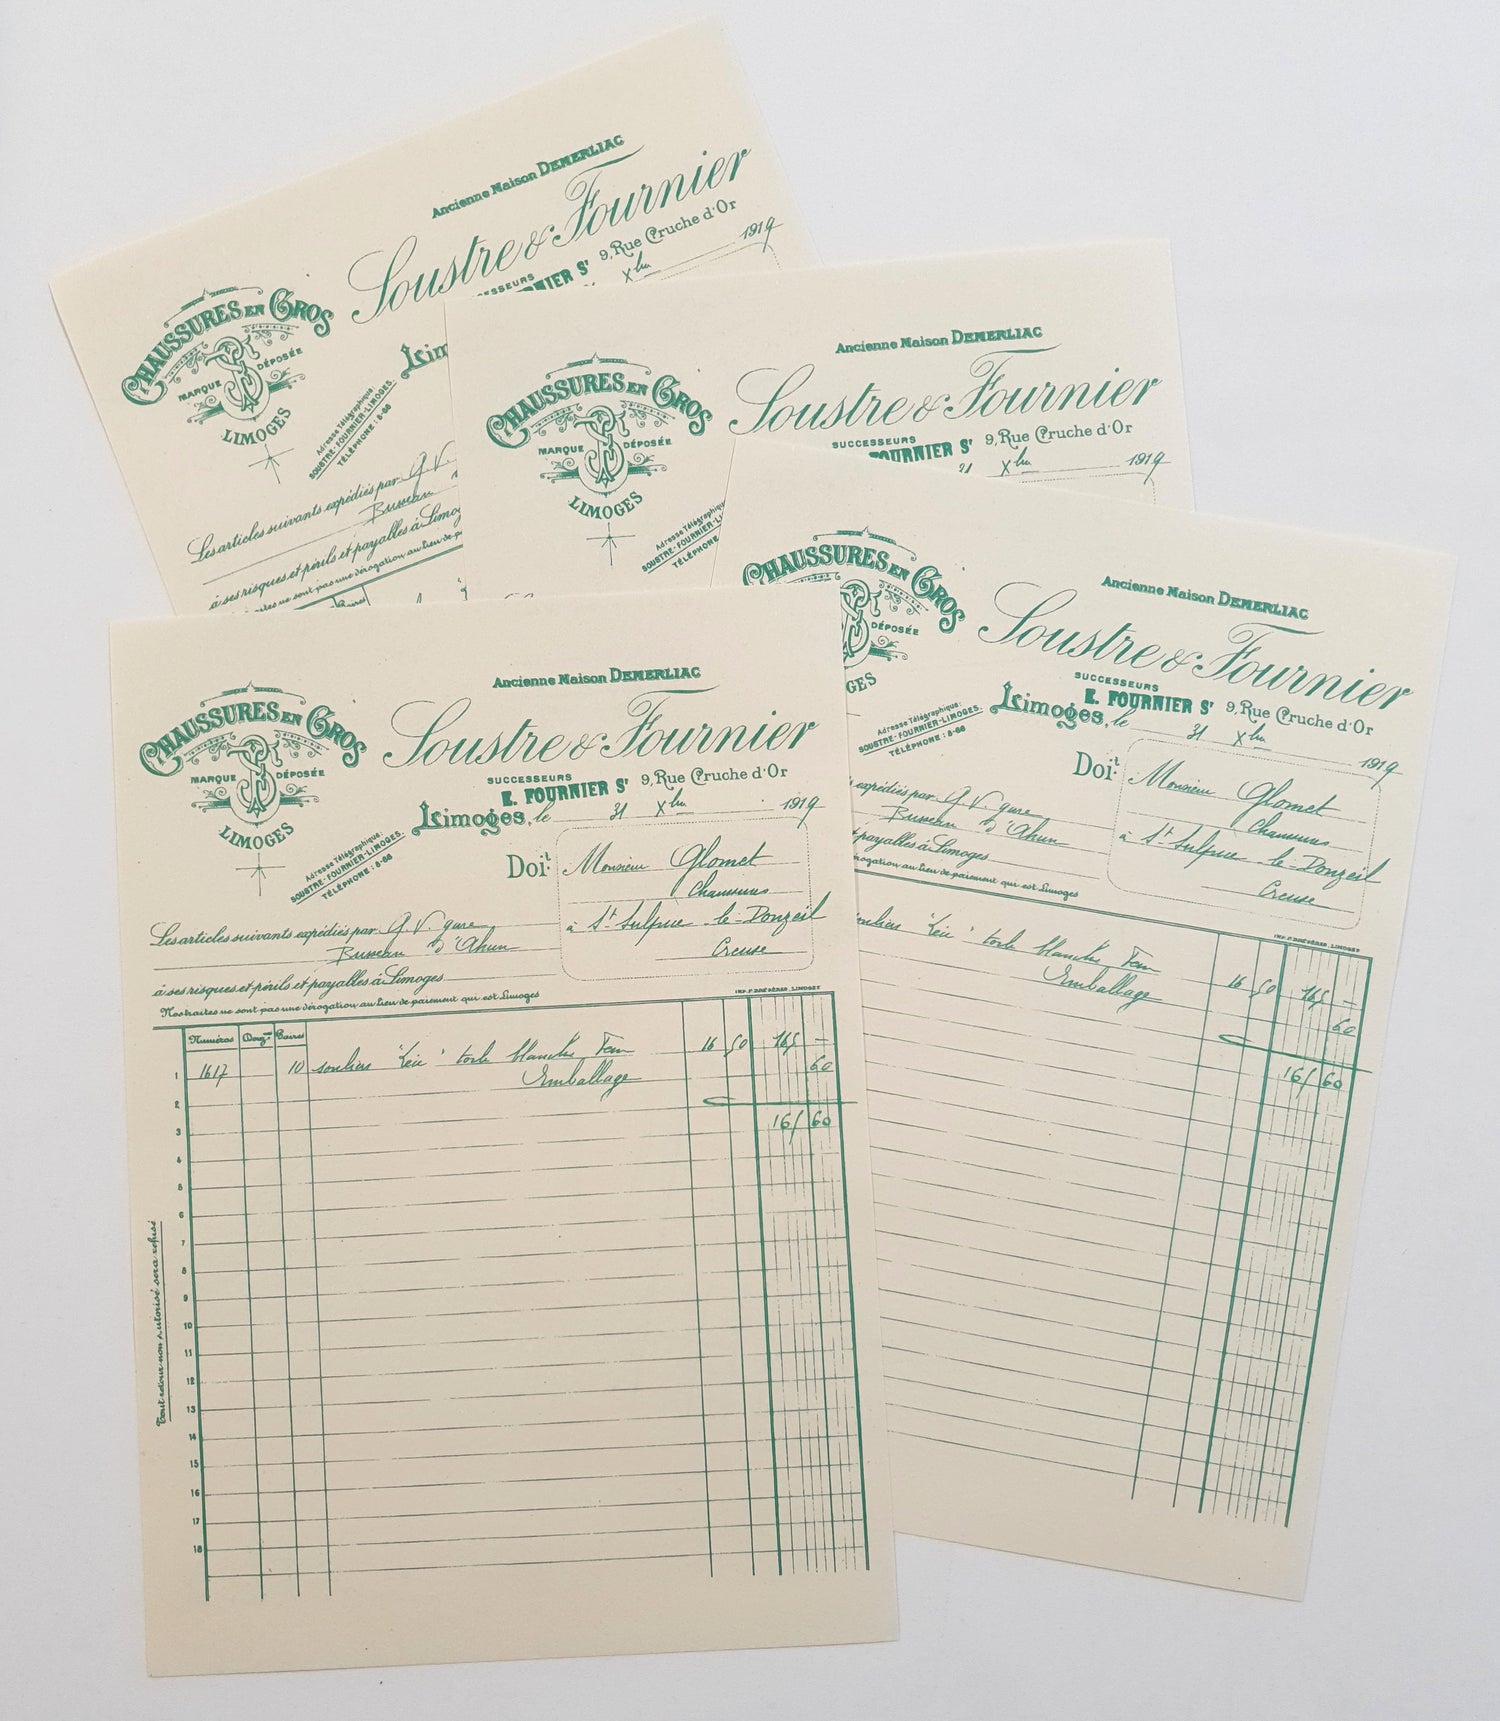 Ancienne Maison DEMERLIAC
Soustre & Fournier
SUCCESSEURS
9, Rue Cruche d'Or
CHAUSSURES EN GROS
MARQUE DÉPOSÉE
LIMOGES
Adresse Télégraphique:
SOUSTRE-FOURNIER-LIMOGES.
TÉLÉPHONE: 8-66
Xbre 1919
Les articles suivants expédiés par G.V.
à ses risques et périls et payables à Limog
Ancienne Maison DEMERLIAC
Soustre & Fournier
SUCCESSEURS
FOURNIER Sr 9, Rue Cruche d'Or
31 Xbre 1919
CHAUSSURES EN GROS
MARQUE DÉPOSÉE
LIMOGES
Adresse Télégraphique
SOUSTRE-FOURNIER-LI
TÉLÉPHONE
Ancienne Maison DEMERLIAC
Soustre & Fournier
SUCCESSEURS
E. FOURNIER Sr 9, Rue Cruche d'Or
CHAUSSURES EN GROS
DÉPOSÉE
GES
Adresse Télégraphique:
SOUSTRE-FOURNIER-LIMOGES.
TÉLÉPHONE: 8-66
Limoges, le 31 Xbre 1919
Doit: Monsieur Glomet
Chaussures
à St Sulpice le Donzeil
Creuse
expédiés par G.V. gare
Busseau d'Ahun
payables à Limoges
rogation au lieu de paiement qui est Limoges
toile blanche Fem 16 50 165 —
Emballage 60
165 60
Ancienne Maison DEMERLIAC
Soustre & Fournier
SUCCESSEURS
E. FOURNIER Sr 9, Rue Cruche d'Or
CHAUSSURES EN GROS
MARQUE DÉPOSÉE
LIMOGES
Adresse Télégraphique:
SOUSTRE-FOURNIER-LIMOGES.
TÉLÉPHONE: 8-66
Limoges, le 31 Xbre 1919
Doit: Monsieur Glomet
Chaussures
à St Sulpice le Donzeil
Creuse
Les articles suivants expédiés par G.V. gare
Busseau d'Ahun
à ses risques et périls et payables à Limoges
Nos traites ne sont pas une dérogation au lieu de paiement qui est Limoges
Numéros Douznes Paires
1617 10 souliers toile blanche Fem 16 50 165 —
Emballage 60
165 60
1
2
3
4
5
6
7
8
9
10
11
12
13
14
15
16
17
18
Tout retour non autorisé sera refusé